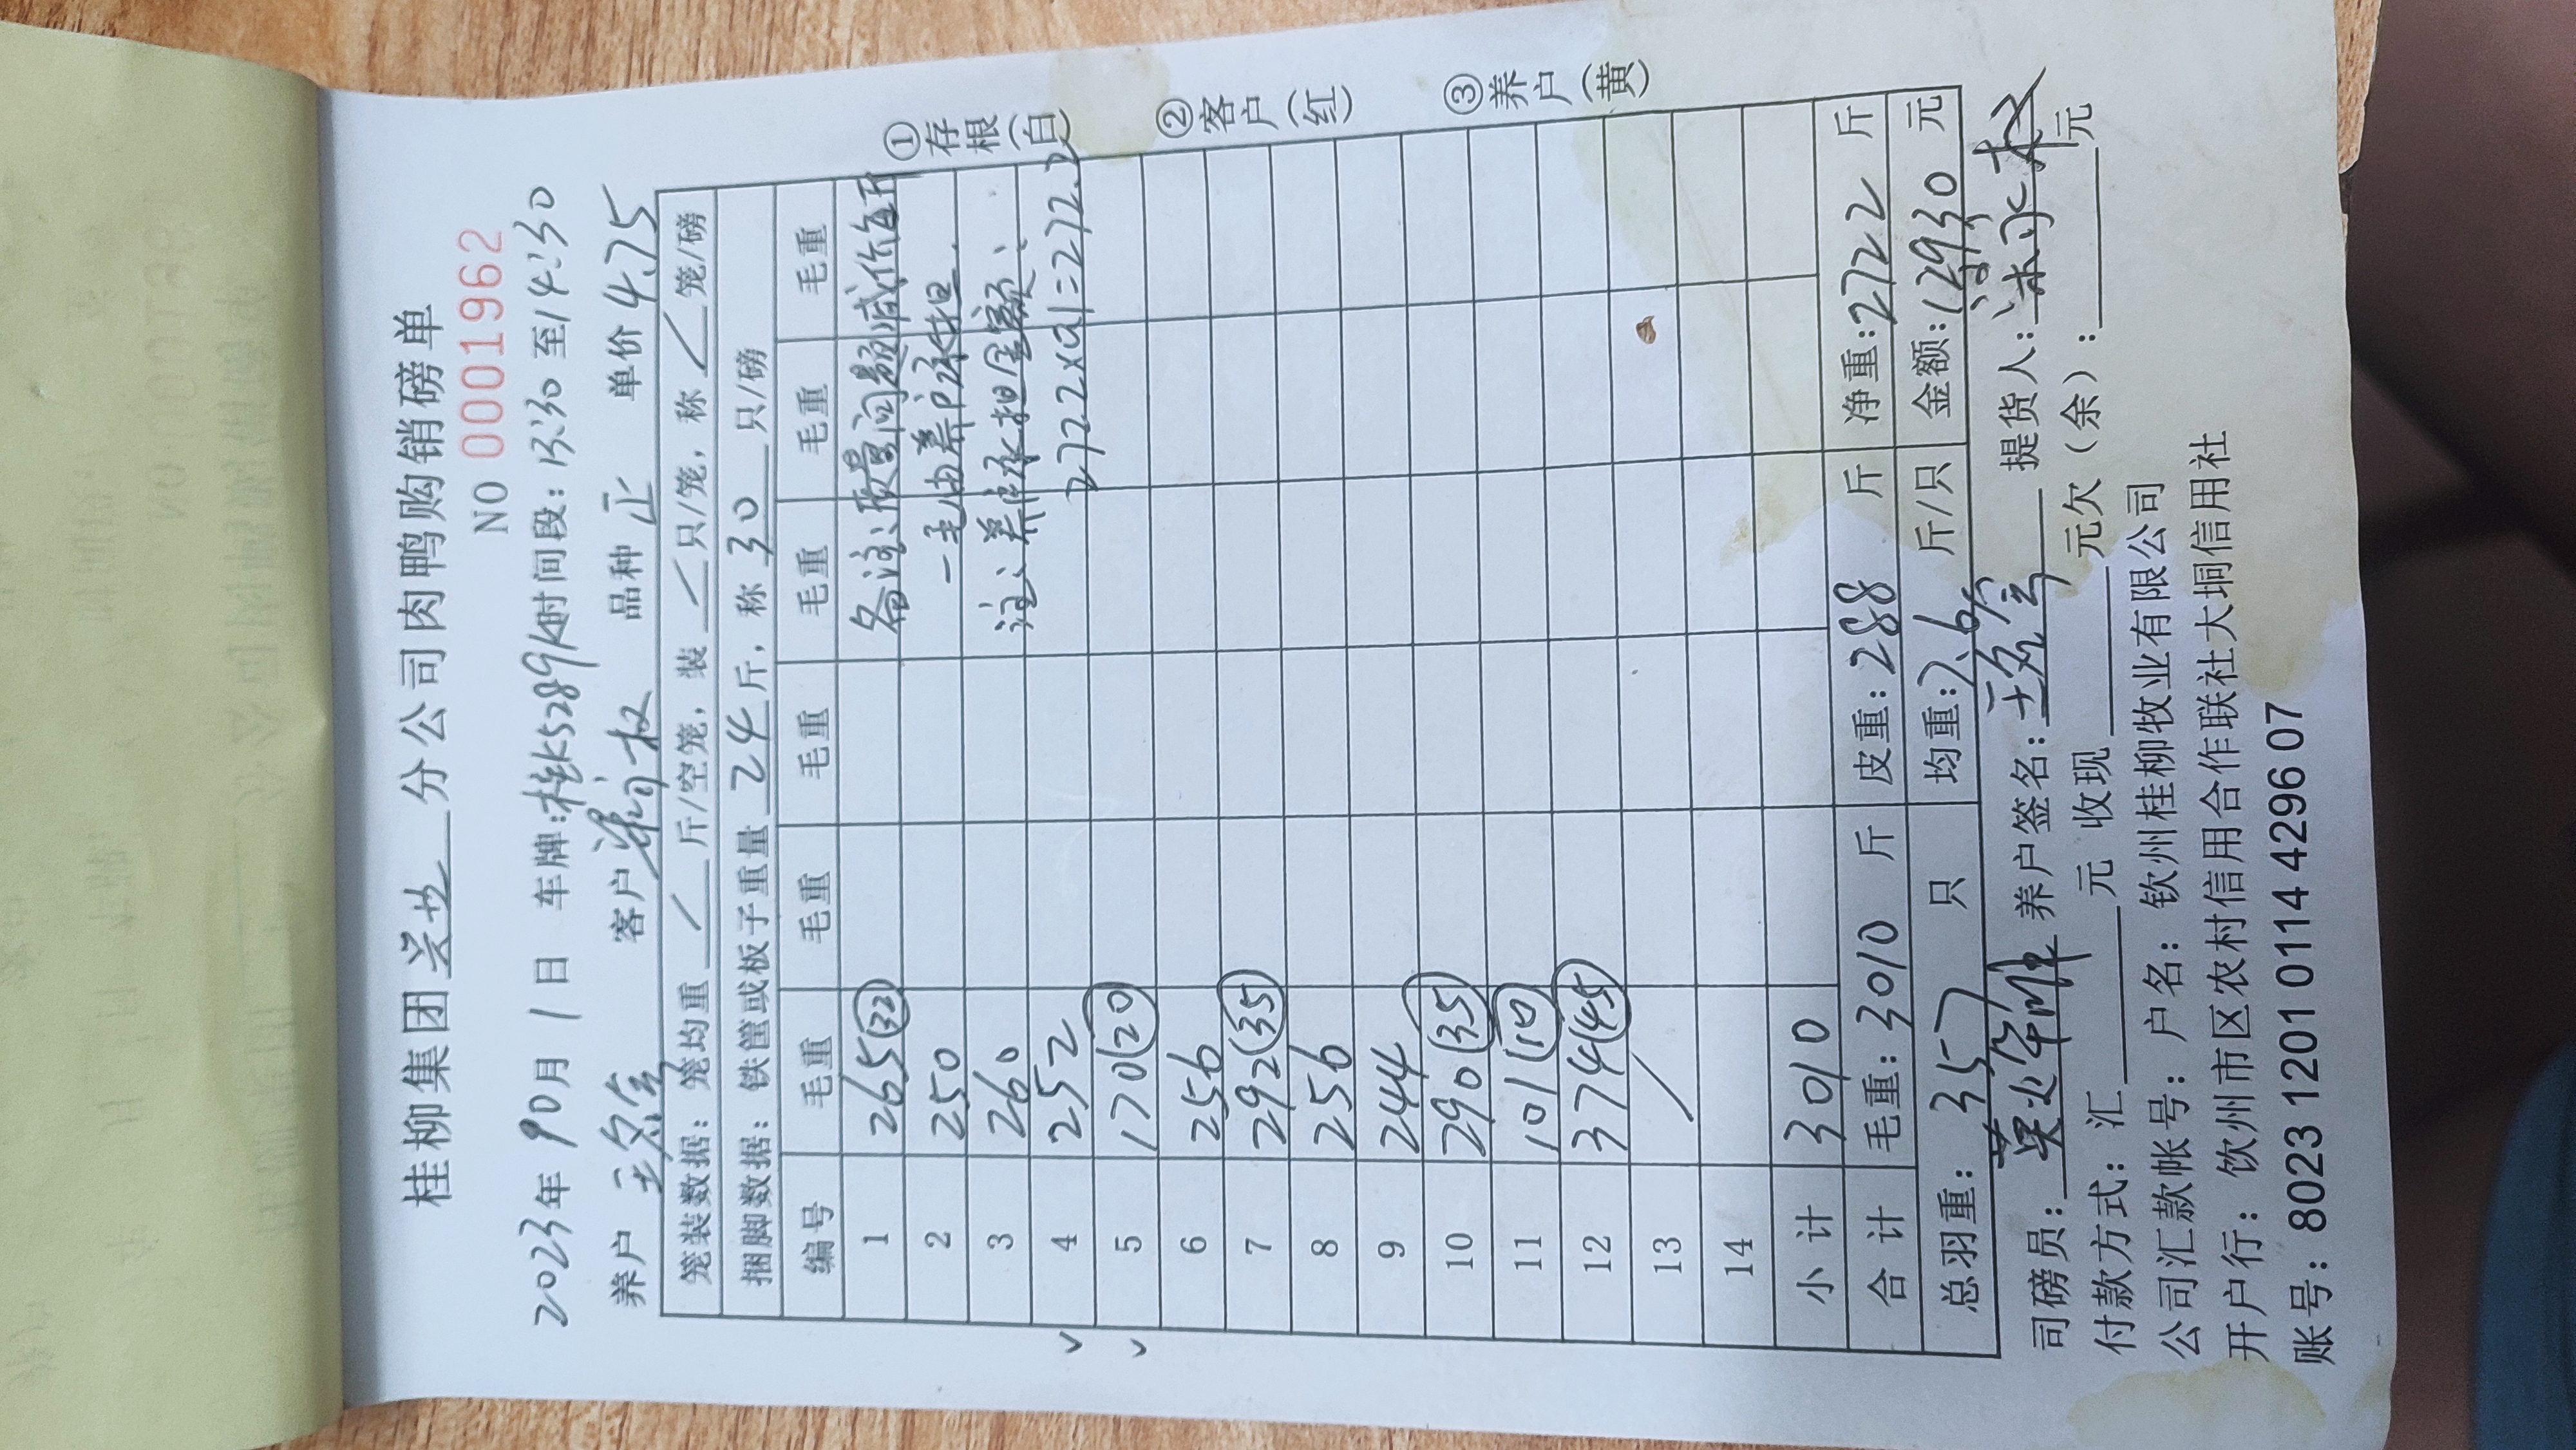 桂柳集团 兴业 分公司肉鸭购销磅单
NO 0001962
2023年 9月 1日 车牌:桂K5289 时间段:13:30 至 14:30
养户 客户 品种 正 单价 4.75
笼装数据:笼均重 / 斤/空笼,装 / 只/笼,称 / 笼/磅
捆脚数据:铁筐或板子重量 24 斤,称 30 只/磅
编号 毛重 毛重 毛重 毛重 毛重 毛重
1 265(32) 备注:质量问题减价每斤
2 250 一毛由养户承担.
3 260 注:养户承担金额:
4 252 2722×0.1=272.2
5 170(20)
6 256
7 292(35)
8 256
9 244
10 290(35)
11 101(10)
12 374(45)
13 /
14
小 计 3010
合 计 毛重:3010 斤 皮重:288 斤 净重:2722 斤
总羽重:357 只 均重:7.6 斤/只 金额:12930 元
司磅员: 养户签名: 提货人:
付款方式:汇 元 收现 元欠(余): 元
公司汇款帐号:户名:钦州桂柳牧业有限公司
开户行:饮州市区农村信用合作联社大垌信用社
账号:8023 1201 0114 4296 07
①存根(白)
②客户(红)
③养户(黄)